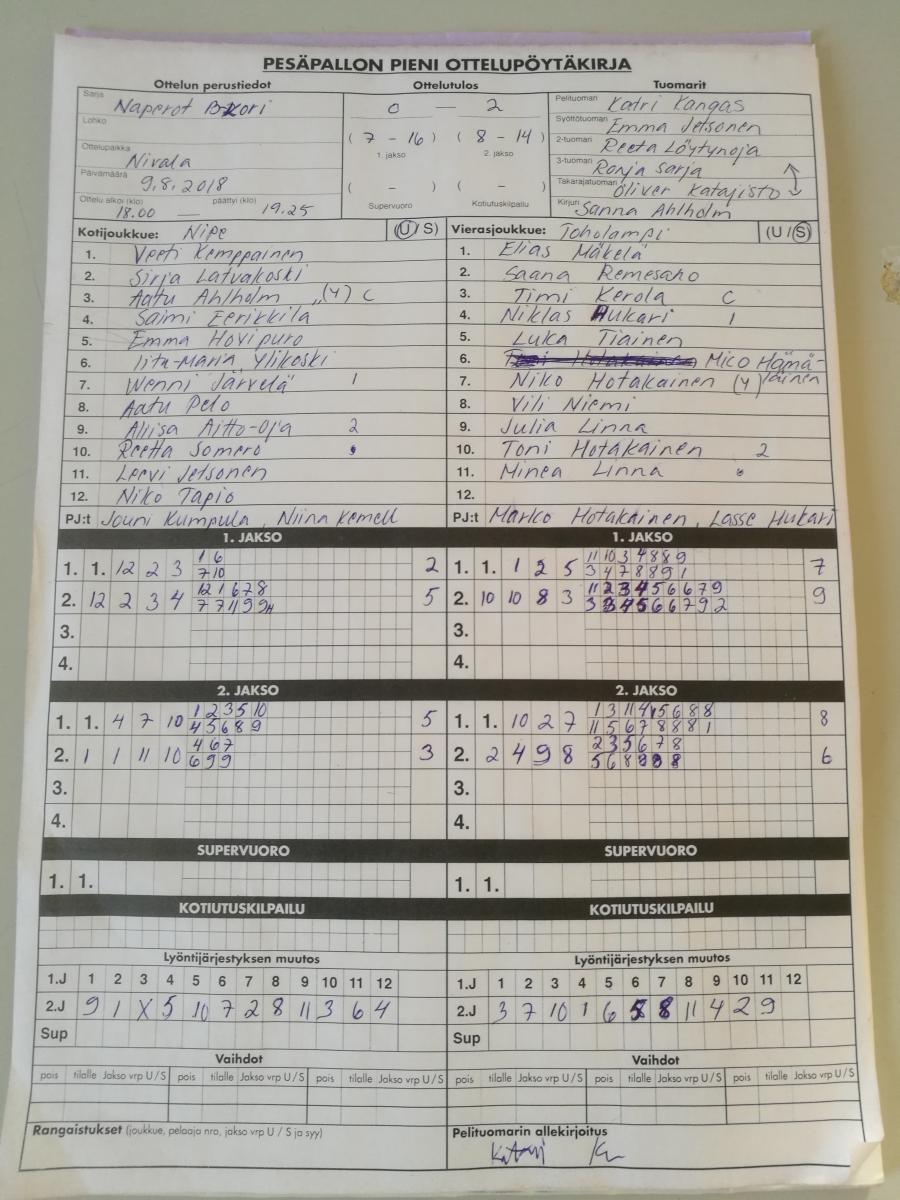 PESÄPALLON PIENI OTTELUPÖYTÄKIRJA
Ottelun perustiedot
Sarja Naperot kori
Lohko
Ottelupaikka Nivala
Päivämäärä 9.8.2018
Ottelu alkoi (klo) 18.00 — päättyi (klo) 19.25
Ottelutulos
0 — 2
( 7 - 16 ) ( 8 - 14 )
1. jakso 2. jakso
( - ) ( - )
Supervuoro Kotiutuskilpailu
Tuomarit
Pelituomari Katri Kangas
Syöttötuomari Emma Jetsonen
2-tuomari Reeta Löytynoja
3-tuomari Ronja Sarja
Takarajatuomari Oliver Katajisto
Kirjuri Sanna Ahlholm
Kotijoukkue: Nipe (U/S)
1. Veeti Kemppainen
2. Sirja Latvakoski
3. Aatu Ahlholm (4) C
4. Saimi Eerikkilä
5. Emma Hovipuro
6. Iita-Maria Ylikoski
7. Wenni Järvelä 1
8. Aatu Pelo
9. Aliisa Aitto-oja 2
10. Reetta Somero
11. Leevi Jetsonen
12. Niko Tapio
PJ:t Jouni Kumpula, Niina Kemell
Vierasjoukkue: Toholampi (U/S)
1. Elias Mäkelä
2. Saana Remesaho
3. Timi Kerola C
4. Niklas Hukari 1
5. Luka Tiainen
6. Mico Hämä-
läinen
7. Niko Hotakainen (4)
8. Vili Niemi
9. Julia Linna
10. Toni Hotakainen 2
11. Minea Linna
12.
PJ:t Marko Hotakainen, Lasse Hukari
1. JAKSO
1 6
1. 1. 12 2 3 7 10 2
12 1 6 7 8
2. 12 2 3 4 7 7 11 9 9 5
3.
4.
1. JAKSO
11 10 3 4 8 8 9
1. 1. 1 2 5 3 4 7 8 8 9 1 7
11 2 3 4 5 6 6 7 9
2. 10 10 8 3 3 3 4 5 6 6 7 9 2 9
3.
4.
2. JAKSO
1 2 3 5 10
1. 1. 4 7 10 4 5 6 8 9 5
4 6 7
2. 1 1 11 10 6 9 9 3
3.
4.
2. JAKSO
1 3 11 4 5 6 8 8
1. 1. 10 2 7 11 5 6 7 8 8 8 1 8
2 3 5 6 7 8
2. 2 4 9 8 5 6 8 9 8 8 6
3.
4.
SUPERVUORO
1. 1.
SUPERVUORO
1. 1.
KOTIUTUSKILPAILU
KOTIUTUSKILPAILU
Lyöntijärjestyksen muutos
1.J 1 2 3 4 5 6 7 8 9 10 11 12
2.J 9 1 X 5 10 7 2 8 11 3 6 4
Sup
Lyöntijärjestyksen muutos
1.J 1 2 3 4 5 6 7 8 9 10 11 12
2.J 3 7 10 1 6 5 8 11 4 2 9
Sup
Vaihdot
pois tilalle Jakso vrp U / S pois tilalle Jakso vrp U / S pois tilalle Jakso vrp U / S
Vaihdot
pois tilalle Jakso vrp U / S pois tilalle Jakso vrp U / S pois tilalle Jakso vrp U / S
Rangaistukset (joukkue, pelaaja nro, jakso vrp U / S ja syy)
Pelituomarin allekirjoitus